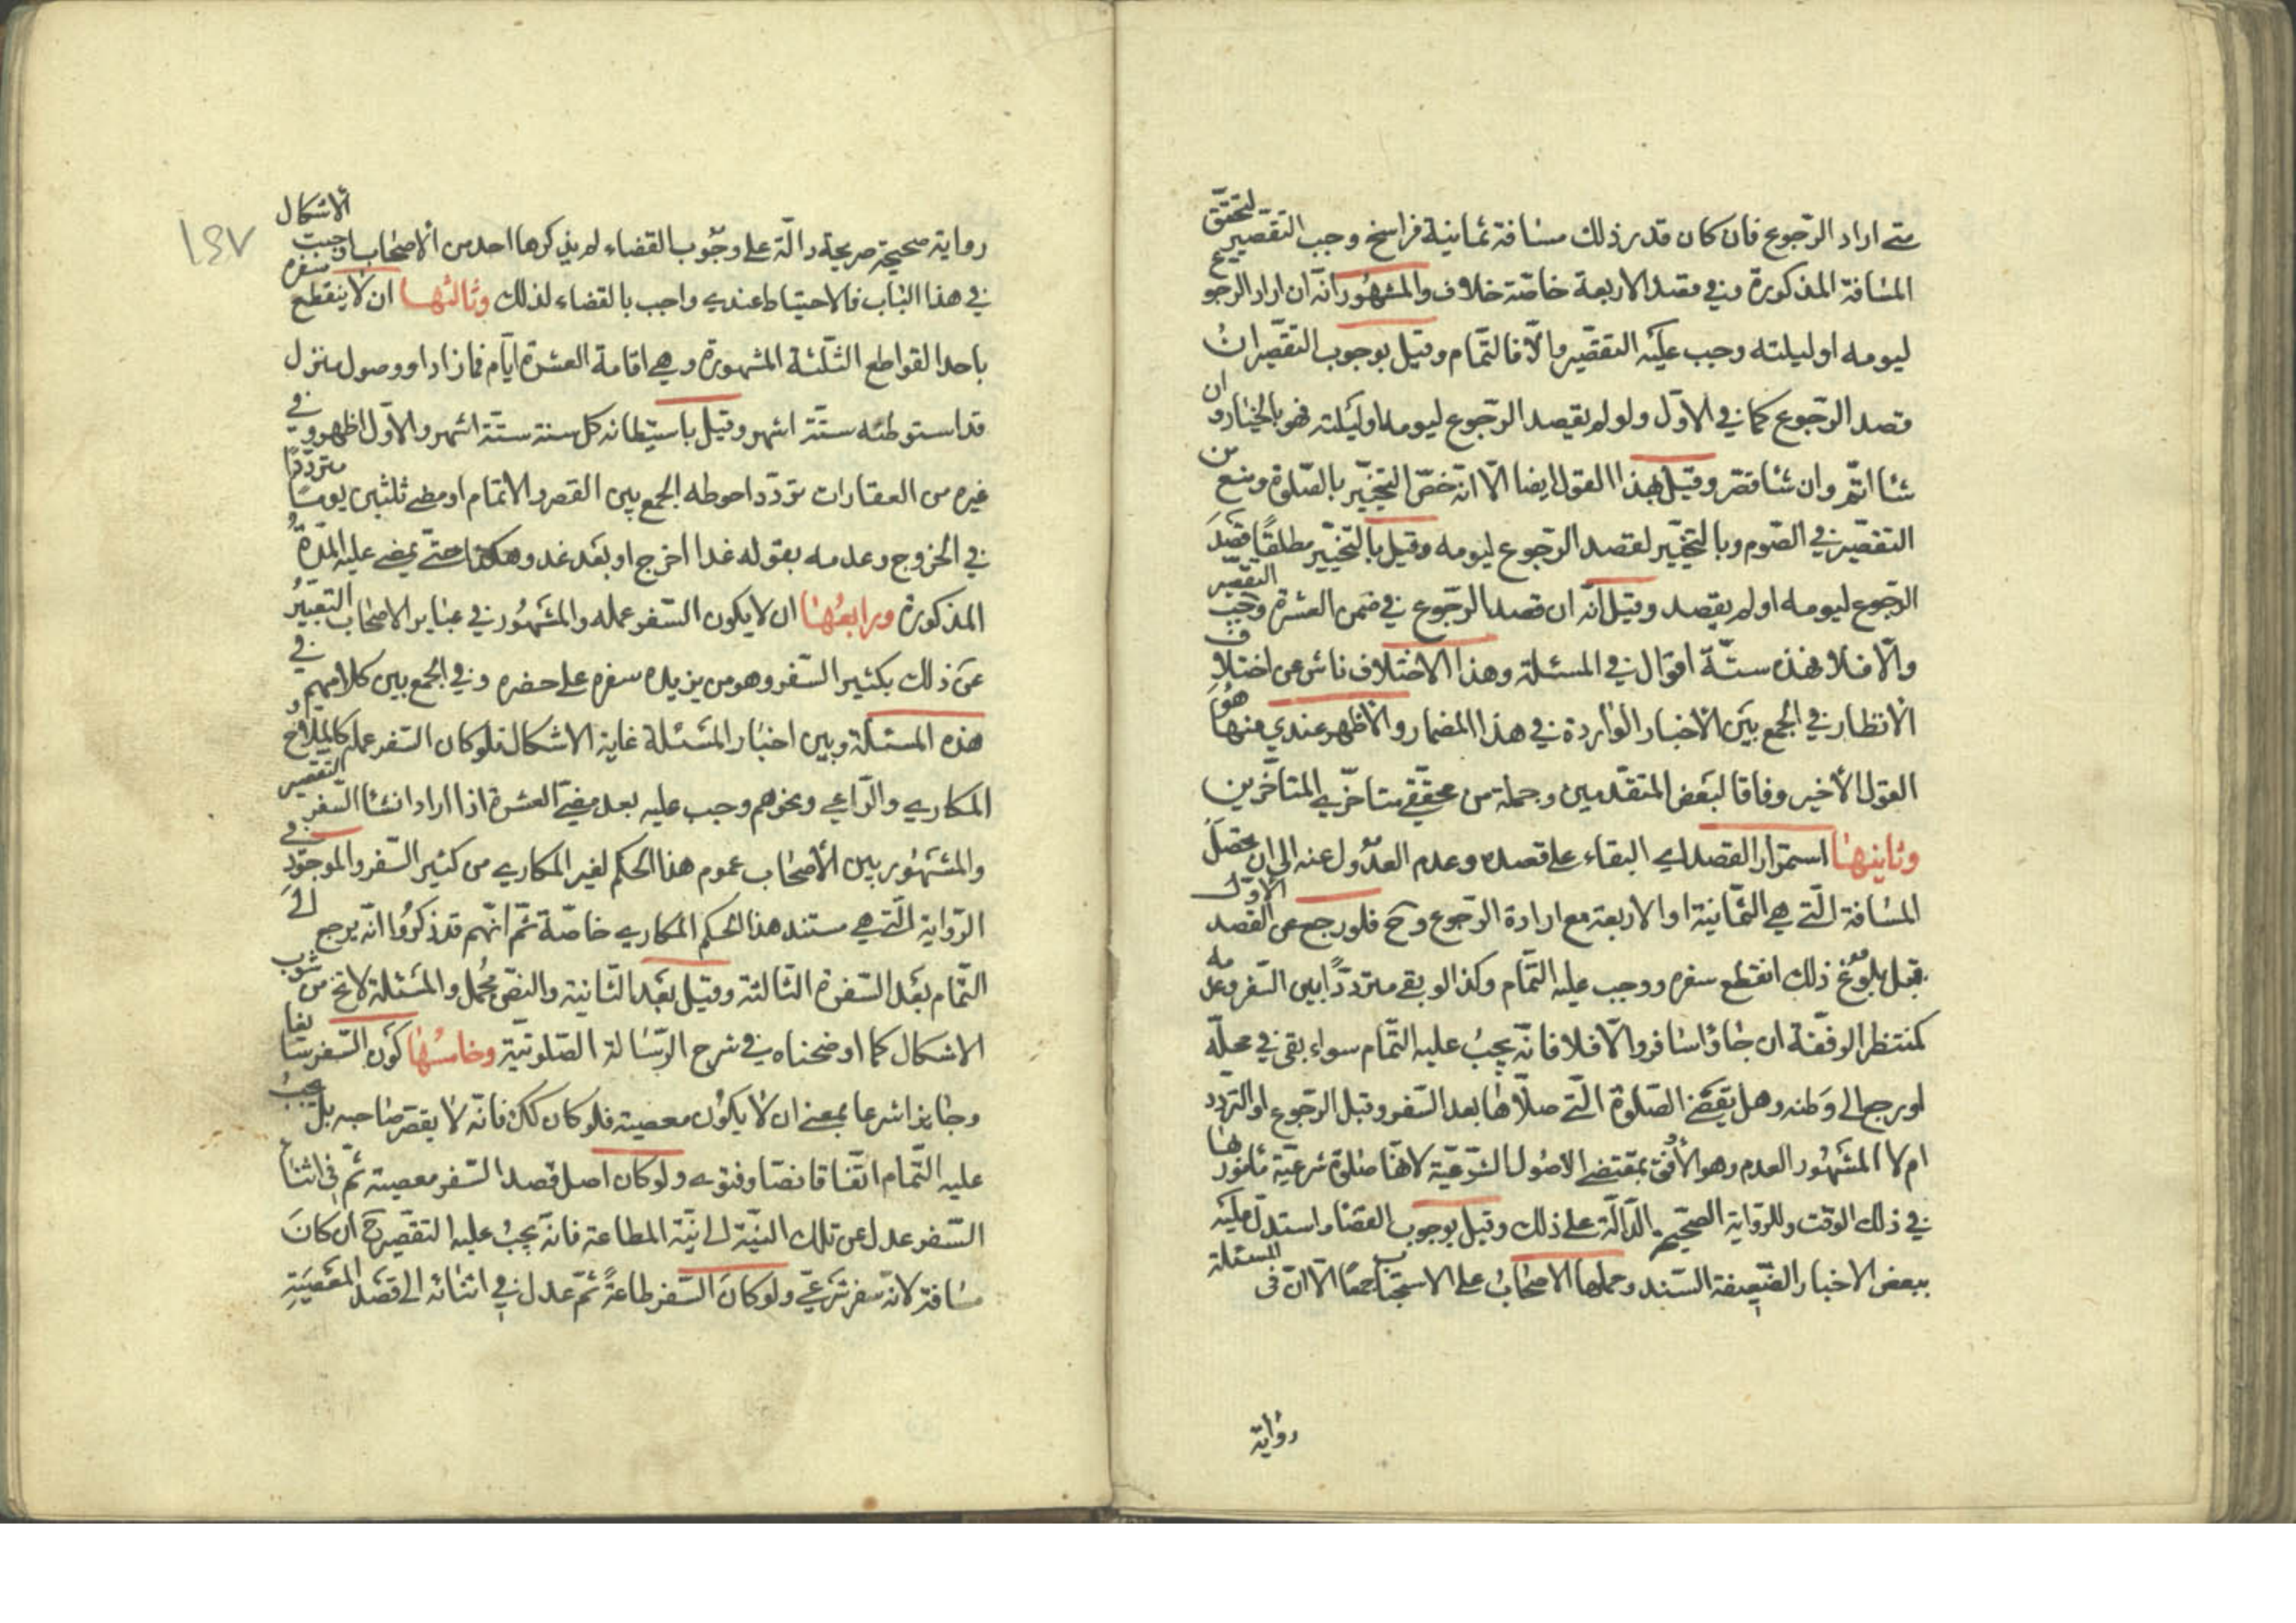 متى اراد الرّجوع فان كان قدر ذلك مسافة ثمانية فراسخ وجب التقصير لتحقّق
المسافة المذكورة وفي مقصد الاربعة خاصّة خلاف والمشهور انّه ان اراد الرجوع
ليومه او ليلته وجب عليه التقصير والّا فالتمام وقيل بوجوب التقصير ان
قصد الرّجوع كما في الاوّل ولو لم يقصد الرّجوع ليومه او ليلته فهو بالخيار وان ان
شاء اتمّ وان شاء قصّر وقيل بهذا القول ايضا الّا انّه خصّ التخيير بالصّلوة ومنع من
التقصير في الصّوم وبالتخيير لقصد الرّجوع ليومه وقيل بالتّخيير مطلقًا قصد
الرّجوع ليومه او لم يقصد وقيل انّه ان قصد الرّجوع في ضمن العشرة وجب التقصير
والّا فلا فهذه ستّة اقوال في المسئلة وهذا الاختلاف ناش عن اختلاف
الانظار في الجمع بين الاخبار الواردة في هذا المضمار والاظهر عندي منها هو
القول الأخير وفاقا لبعض المتقدّمين وجملة من محقّقي متاخّري المتاخّرين
وثانيها استمرار القصد اي البقاء على قصده وعدم العدول عنه الى ان يحصل
المسافة الّتي هي الثمانية او الاربعة مع ارادة الرّجوع وح فلو رجع عن القصد الاوّل
قبل بلوغ ذلك انقطع سفره ووجب عليه التّمام وكذا لو بقي متردّدًا بين السّفر وعدمه
كمنتظر الرفقة ان جاؤا سافر والّا فلا فانّه يجب عليه التّمام سواء بقي في محلّه
او رجع الى وطنه وهل يقضي الصّلوة الّتي صلّاها بعد السّفر وقبل الرّجوع او التردّد
ام لا المشهور العدم وهو الأوفق بمقتضى الاصول الشّرعيّة لانّها صلوة شرعيّة مأمور بها
في ذلك الوقت وللرّواية الصّحيحة الدّالّة على ذلك وقيل بوجوب القضاء واستدلّ عليه
ببعض الاخبار الضّعيفة السّند وحملها الاصحاب على الاستحباب جمعًا الّا انّ في المسئلة
رواية
١٤٧
رواية صحيحة صريحة دالّة على وجوب القضاء لم يذكرها احد من الاصحاب اوجبت الاشكال
في هذا الباب فالاحتياط عندي واجب بالقضاء لذلك وثالثها ان لا ينقطع سفره
باحد القواطع الثّلثة المشهورة وهي اقامة العشرة ايّام فما زاد او وصول منزل
قد استوطنه ستّة اشهر وقيل باستيطانه كل سنة ستّة اشهر والاوّل اظهر وفي
غيره من العقارات تردّد احوطه الجمع بين القصر والاتمام او مضي ثلثين يومًا متردّدًا
في الخروج وعدمه بقوله غدا اخرج او بعد غد وهكذا حتّى يمضي عليه المدّة
المذكورة ورابعها ان لا يكون السّفر عمله والمشهور في عباير الاصحاب التعبير
عن ذلك بكثير السّفر وهو من يزيد سفره على حضره وفي الجمع بين كلامهم في
هذه المسئلة وبين اخبار المسئلة غاية الاشكال فلو كان السّفر عمله كالملّاح و
المكاري والرّاعي ونحوهم وجب عليه بعد مضيّ العشرة اذا اراد انشاء السّفر التقصير
والمشهور بين الأصحاب عموم هذا الحكم لغير المكاري من كثير السّفر والموجود في
الرّواية الّتي هي مستند هذا الحكم المكاري خاصّة ثمّ انّهم قد ذكروا انّه يرجع الى
التّمام بعد السّفرة الثّالثة وقيل بعد الثّانية والنصّ مجمل والمسئلة لا تخ من شوب
الاشكال كما اوضحناه في شرح الرّسالة الصّلوتيّة وخامسها كون السّفر سايغا
وجايزا شرعا بمعنى ان لا يكون معصية فلو كان كك فانّه لا يقصّر صاحبه بل يجب
عليه التّمام اتّفاقا نصّا وفتوى ولو كان اصل قصد السّفر معصية ثمّ في اثناء
السّفر عدل عن تلك النيّة الى نيّة المطاعة فانّه يجب عليه التقصير ح ان كان
مسافة لانّه سفر شرعيّ ولو كان السّفر طاعةً ثمّ عدل في اثنائه الى قصد المعصية